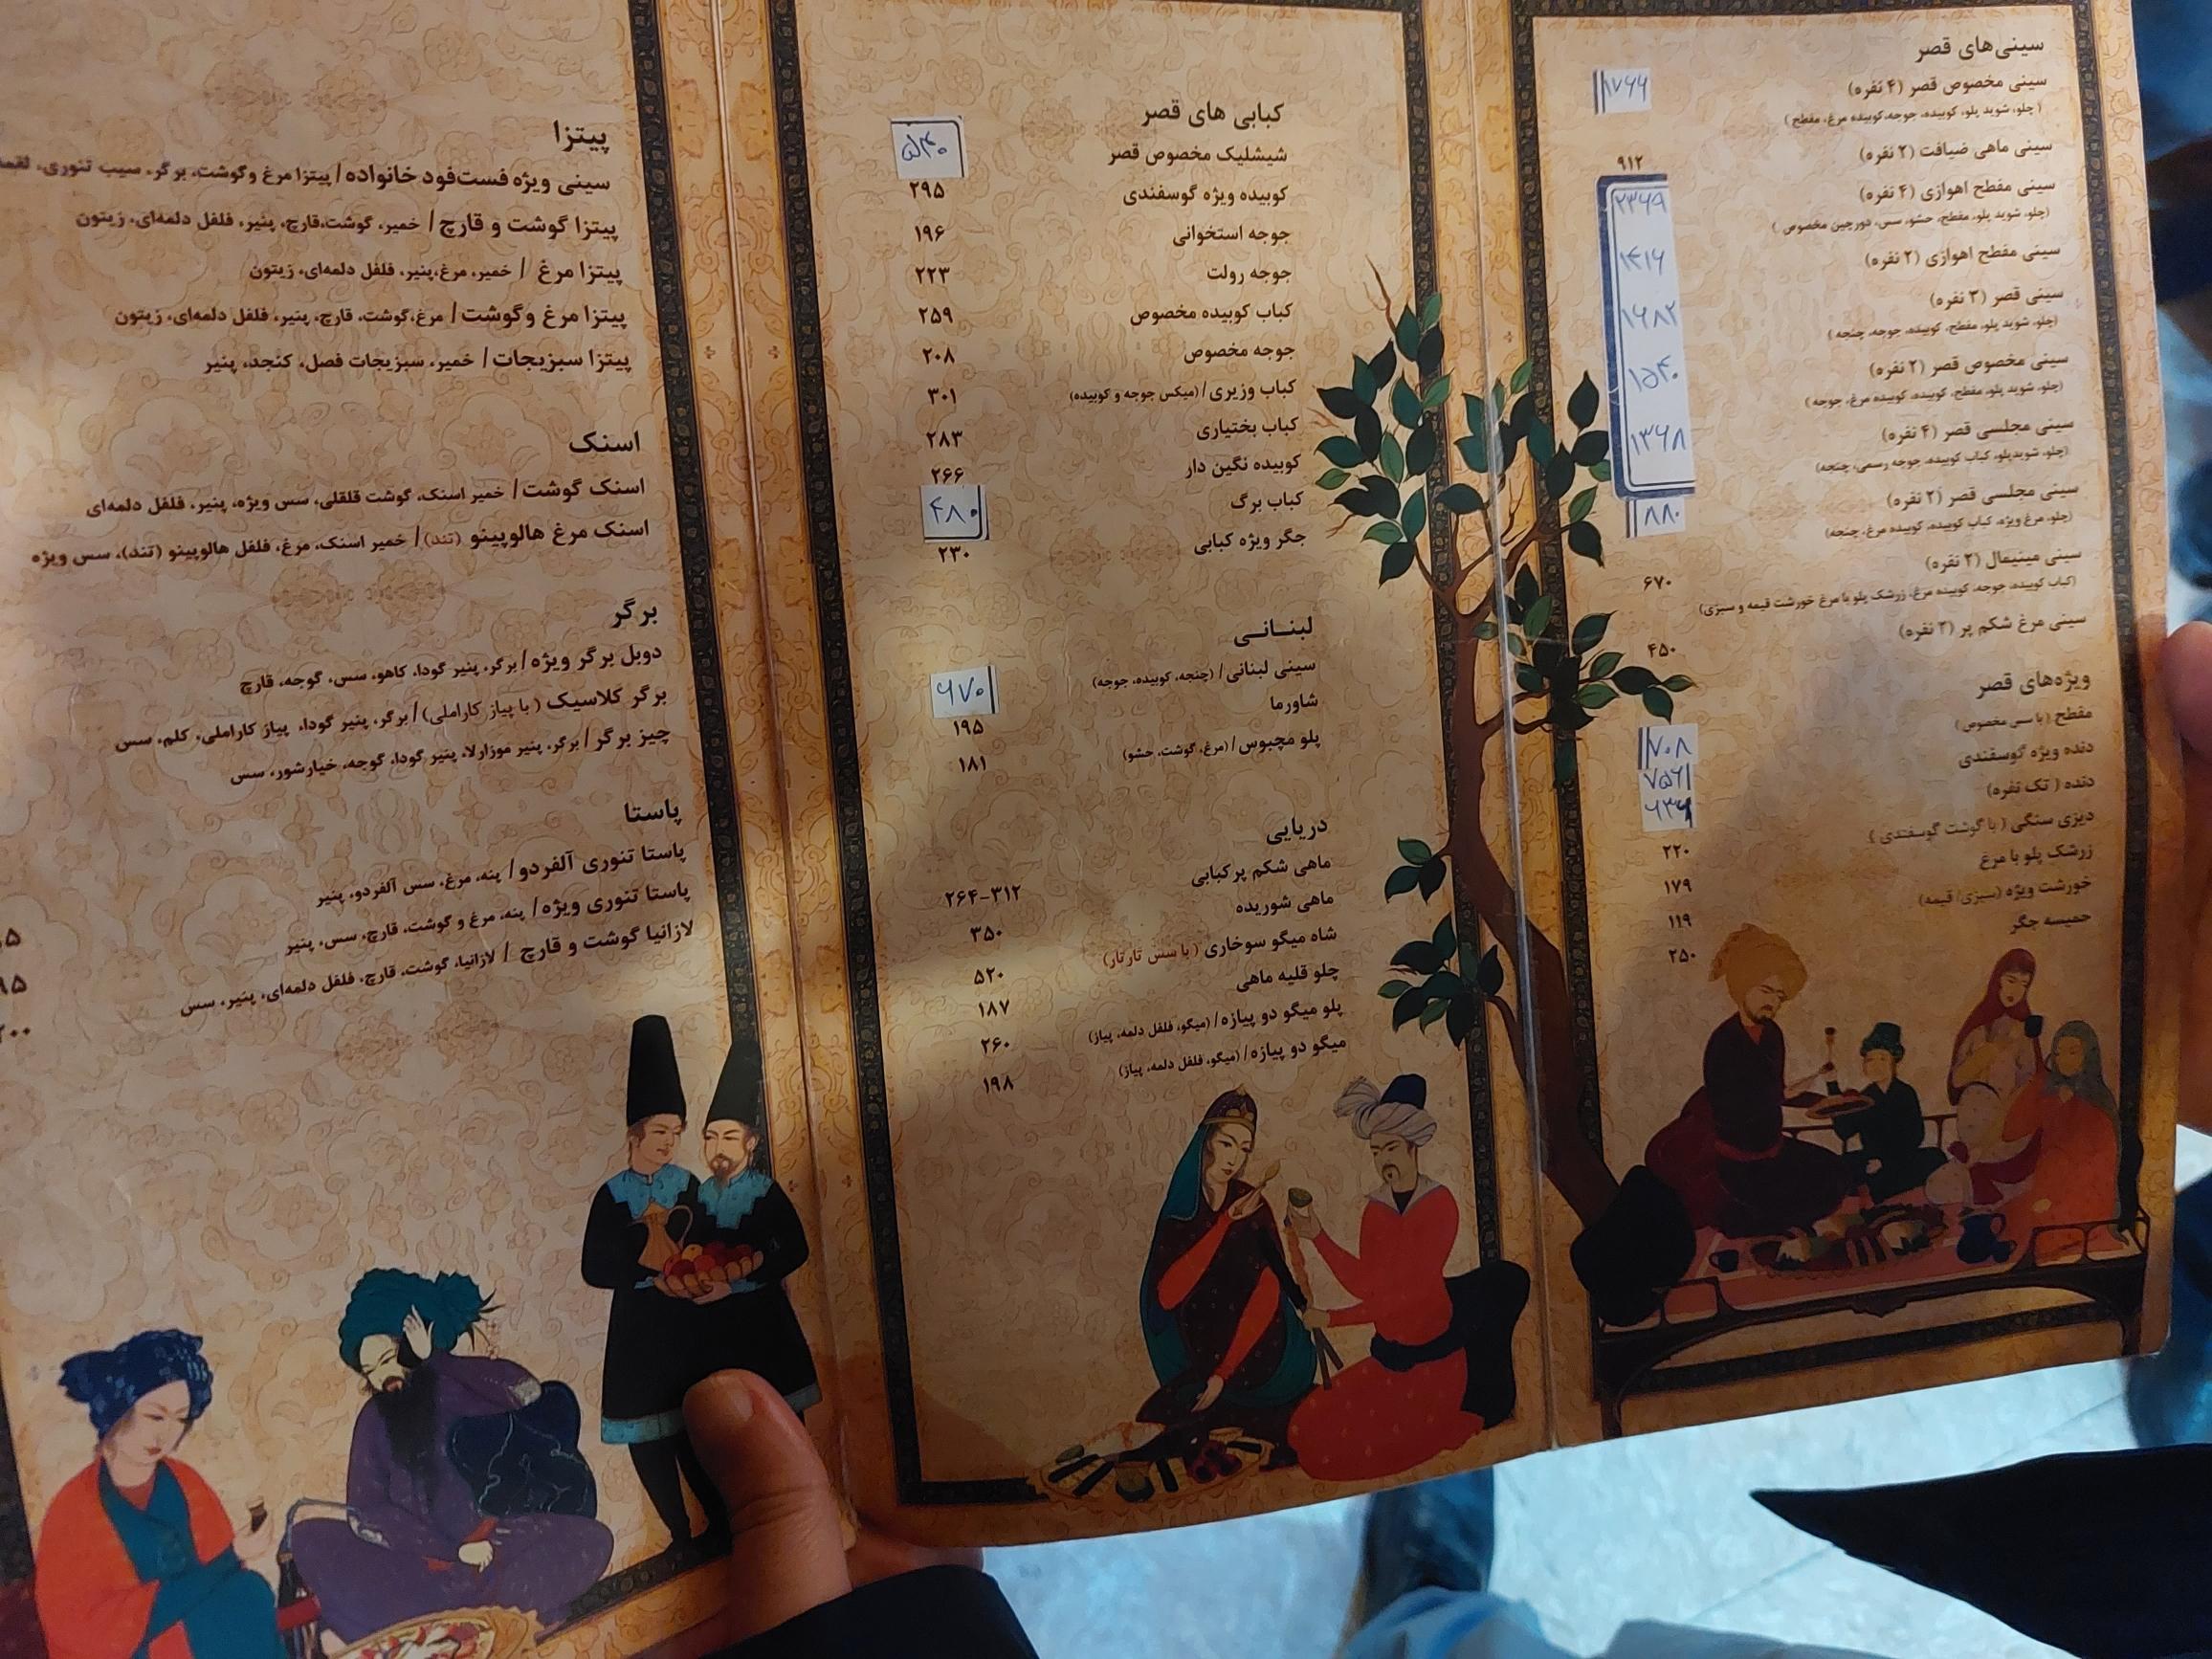 سینی‌های قصر
سینی مخصوص قصر (۴ نفره) ۱۷۶۶
(چلو، شوید پلو، کوبیده، جوجه، کوبیده مرغ، مقطح)
سینی ماهی ضیافت (۲ نفره) ۹۱۲
سینی مقطح اهوازی (۴ نفره) ۲۳۶۹
(چلو، شوید پلو، مقطح، حشو، سس، دورچین مخصوص)
سینی مقطح اهوازی (۲ نفره) ۱۴۱۶
سینی قصر (۳ نفره) ۱۶۸۲
(چلو، شوید پلو، مقطح، کوبیده، جوجه، چنجه)
سینی مخصوص قصر (۲ نفره) ۱۵۴۰
(چلو، شوید پلو، مقطح، کوبیده، کوبیده مرغ، جوجه)
سینی مجلسی قصر (۴ نفره) ۱۳۶۸
(چلو، شویدپلو، کباب کوبیده، جوجه رسمی، چنجه)
سینی مجلسی قصر (۲ نفره) ۸۸۰
(چلو، مرغ ویژه، کباب کوبیده، کوبیده مرغ، چنجه)
سینی مینیمال (۲ نفره) ۶۷۰
(کباب کوبیده، جوجه، کوبیده مرغ، زرشک پلو با مرغ خورشت قیمه و سبزی)
سینی مرغ شکم پر (۲ نفره) ۴۵۰
ویژه‌های قصر
مقطح (با سس مخصوص) ۷۰۸
دنده ویژه گوسفندی ۷۵۶
دنده (تک نفره)
دیزی سنگی (با گوشت گوسفندی) ۲۲۰
زرشک پلو با مرغ ۱۷۹
خورشت ویژه (سبزی/ قیمه) ۱۱۹
حمیسه جگر ۲۵۰
کبابی های قصر
شیشلیک مخصوص قصر ۵۴۰
کوبیده ویژه گوسفندی ۲۹۵
جوجه استخوانی ۱۹۶
جوجه رولت ۲۲۳
کباب کوبیده مخصوص ۲۵۹
جوجه مخصوص ۲۰۸
کباب وزیری/ (میکس جوجه و کوبیده) ۳۰۱
کباب بختیاری ۲۸۳
کوبیده نگین دار ۲۶۶
کباب برگ ۴۸۰
جگر ویژه کبابی ۲۳۰
لبنــانــی
سینی لبنانی/ (چنجه، کوبیده، جوجه) ۶۷۰
شاورما ۱۹۵
پلو مچبوس/ (مرغ، گوشت، حشو) ۱۸۱
دریایی
ماهی شکم پر کبابی ۲۶۴-۳۱۲
ماهی شوریده ۳۵۰
شاه میگو سوخاری (با سس تارتار) ۵۲۰
چلو قلیه ماهی ۱۸۷
پلو میگو دو پیازه/ (میگو، فلفل دلمه، پیاز) ۲۶۰
میگو دو پیازه/ (میگو، فلفل دلمه، پیاز) ۱۹۸
پیتزا
سینی ویژه فست‌فود خانواده/ پیتزا مرغ وگوشت، برگر، سیب تنوری،
پیتزا گوشت و قارچ/ خمیر، گوشت،قارچ، پنیر، فلفل دلمه‌ای، زیتون
پیتزا مرغ / خمیر، مرغ،پنیر، فلفل دلمه‌ای، زیتون
پیتزا مرغ وگوشت/ مرغ،گوشت، قارچ، پنیر، فلفل دلمه‌ای، زیتون
پیتزا سبزیجات/ خمیر، سبزیجات فصل، کنجد، پنیر
اسنک
اسنک گوشت/ خمیر اسنک، گوشت قلقلی، سس ویژه، پنیر، فلفل دلمه‌ای
اسنک مرغ هالوپینو (تند)/ خمیر اسنک، مرغ، فلفل هالوپینو (تند)، سس ویژه
برگر
دوبل برگر ویژه/ برگر، پنیر گودا، کاهو، سس، گوجه، قارچ
برگر کلاسیک (با پیاز کاراملی)/ برگر، پنیر گودا، پیاز کاراملی، کلم، سس
چیز برگر/ برگر، پنیر موزارلا، پنیر گودا، گوجه، خیارشور، سس
پاستا
پاستا تنوری آلفردو/ پنه، مرغ، سس آلفردو، پنیر
پاستا تنوری ویژه/ پنه، مرغ و گوشت، قارچ، سس، پنیر
لازانیا گوشت و قارچ / لازانیا، گوشت، قارچ، فلفل دلمه‌ای، پنیر، سس